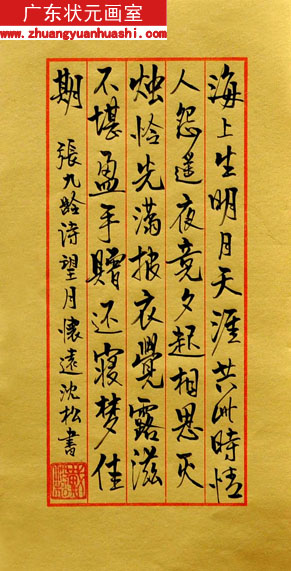 广东状元画室
www.zhuangyuanhuashi.com
海上生明月天涯共此時情
人怨遥夜竟夕起相思灭
烛怜光滿披衣覺露滋
不堪盈手贈还寝梦佳
期
張九龄诗望月懷遠沈松書